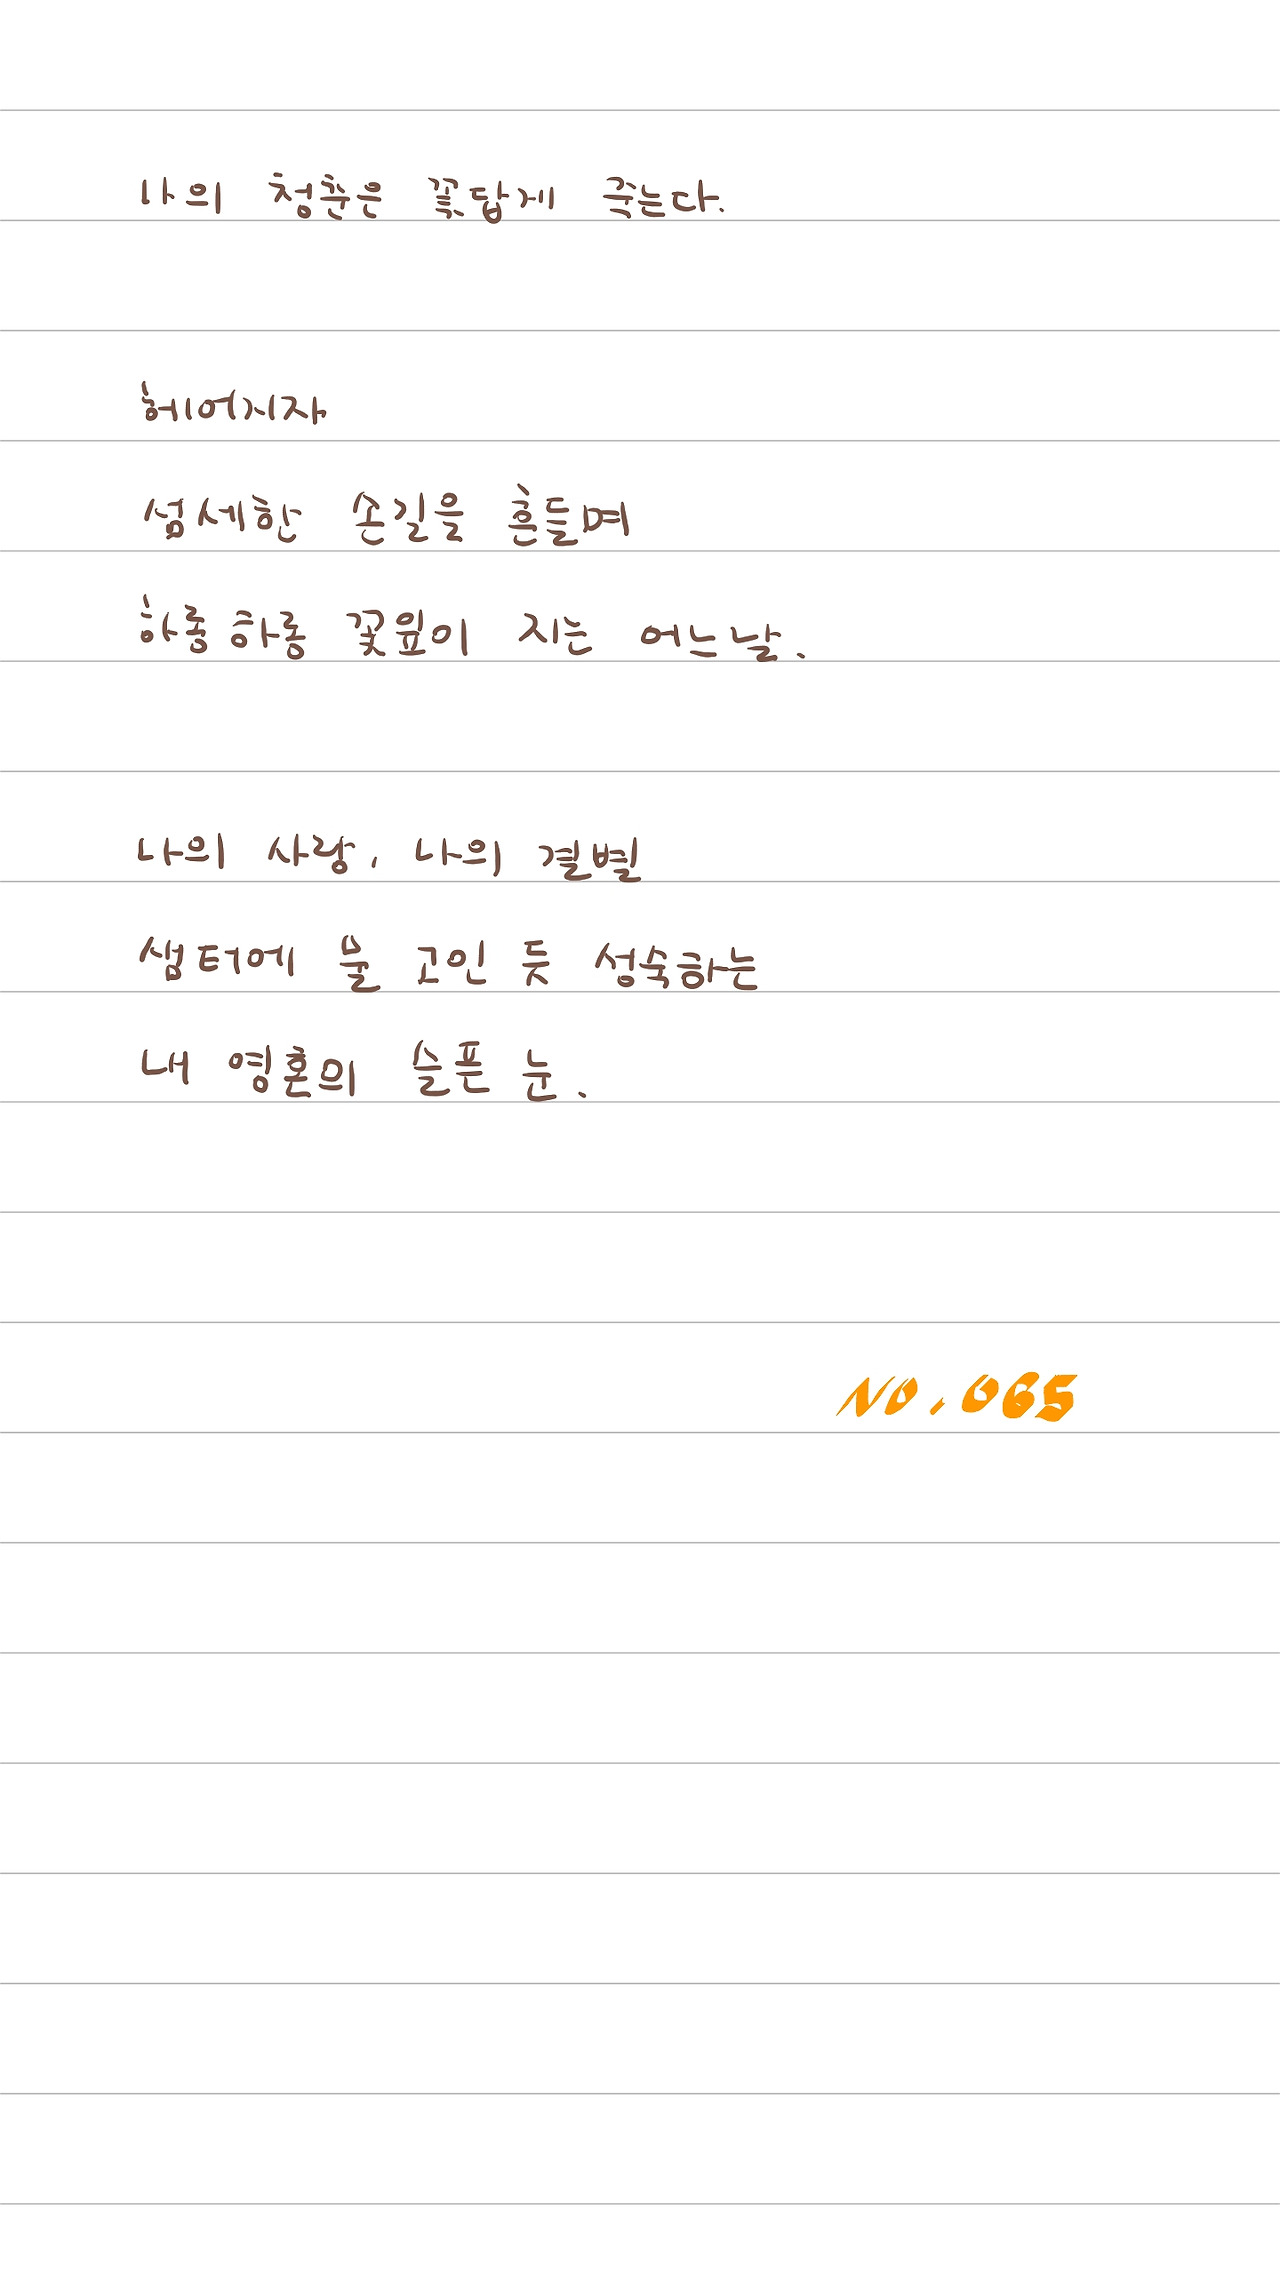 나의 청춘은 꽃답게 죽는다.
헤어지자
섬세한 손길을 흔들며
하롱하롱 꽃잎이 지는 어느날.
나의 사랑, 나의 결별
샘터에 물 고인 듯 성숙하는
내 영혼의 슬픈 눈.
NO.065